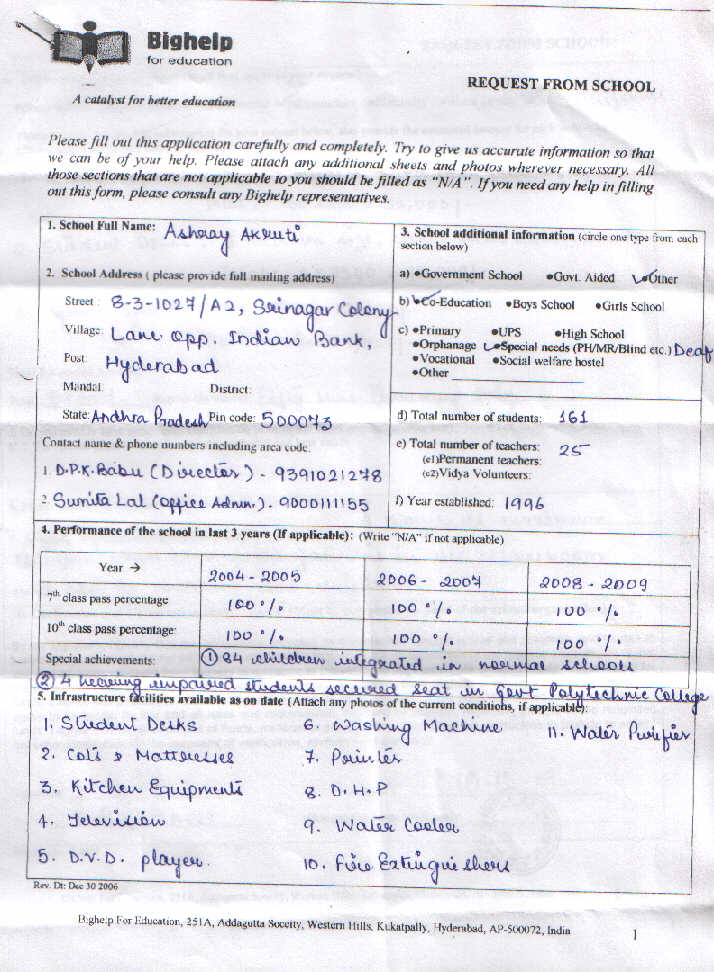 Bighelp
for education
A catalyst for better education
REQUEST FROM SCHOOL
Please fill out this application carefully and completely. Try to give us accurate information so that
we can be of your help. Please attach any additional sheets and photos wherever necessary. All
those sections that are not applicable to you should be filled as "N/A". If you need any help in filling
out this form, please consult any Bighelp representatives.
1. School Full Name: Ashray Akruti
2. School Address ( please provide full mailing address)
Street : 8-3-1027/A2, Srinagar Colony
Village: Lane Opp. Indian Bank,
Post: Hyderabad
Mandal: District:
State: Andhra Pradesh Pin code: 500073
Contact name & phone numbers including area code:
1. D.P.K. Babu (Director) - 9391021278
2. Sunita Lal (Office Admn.) - 9000111155
3. School additional information (circle one type from each
section below)
a) •Government School •Govt. Aided •Other
b) •Co-Education •Boys School •Girls School
c) •Primary •UPS •High School
•Orphanage •Special needs (PH/MR/Blind etc.) Deaf
•Vocational •Social welfare hostel
•Other
d) Total number of students: 161
e) Total number of teachers: 25
(e1)Permanent teachers:
(e2)Vidya Volunteers:
f) Year established: 1996
4. Performance of the school in last 3 years (If applicable): (Write "N/A" if not applicable)
Year → 2004 - 2005 2006 - 2007 2008 - 2009
7th class pass percentage 100 % 100 % 100 %
10th class pass percentage: 100 % 100 % 100 %
Special achievements: ① 84 children integrated in normal schools
② 4 hearing impaired students secured seat in Govt Polytechnic College
5. Infrastructure facilities available as on date (Attach any photos of the current conditions, if applicable):
1. Student Desks 6. Washing Machine 11. Water Purifier
2. Cots & Mattresses 7. Printer
3. Kitchen Equipments 8. O.H.P
4. Television 9. Water Cooler
5. D.V.D. player. 10. Fire Extinguishers
Rev. Dt: Dec 30 2006
Bighelp For Education, 251A, Addagutta Soceity, Western Hills, Kukatpally, Hyderabad, AP-500072, India
1